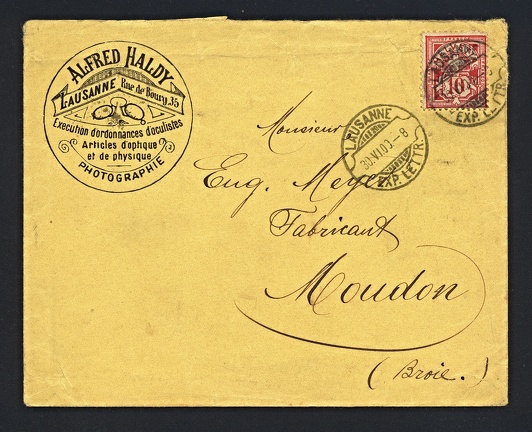 ALFRED HALDY
LAUSANNE Rue de Bourg, 35
Execution d'ordonnances d'oculistes
Articles d'optique
et de physique
PHOTOGRAPHIE
10
LAUSANNE
EXP. LETTR.
LAUSANNE
30.VI.00.–8
EXP. LETTR.
Monsieur
Eug. Meyer
Fabricant
Moudon
(Broie.)